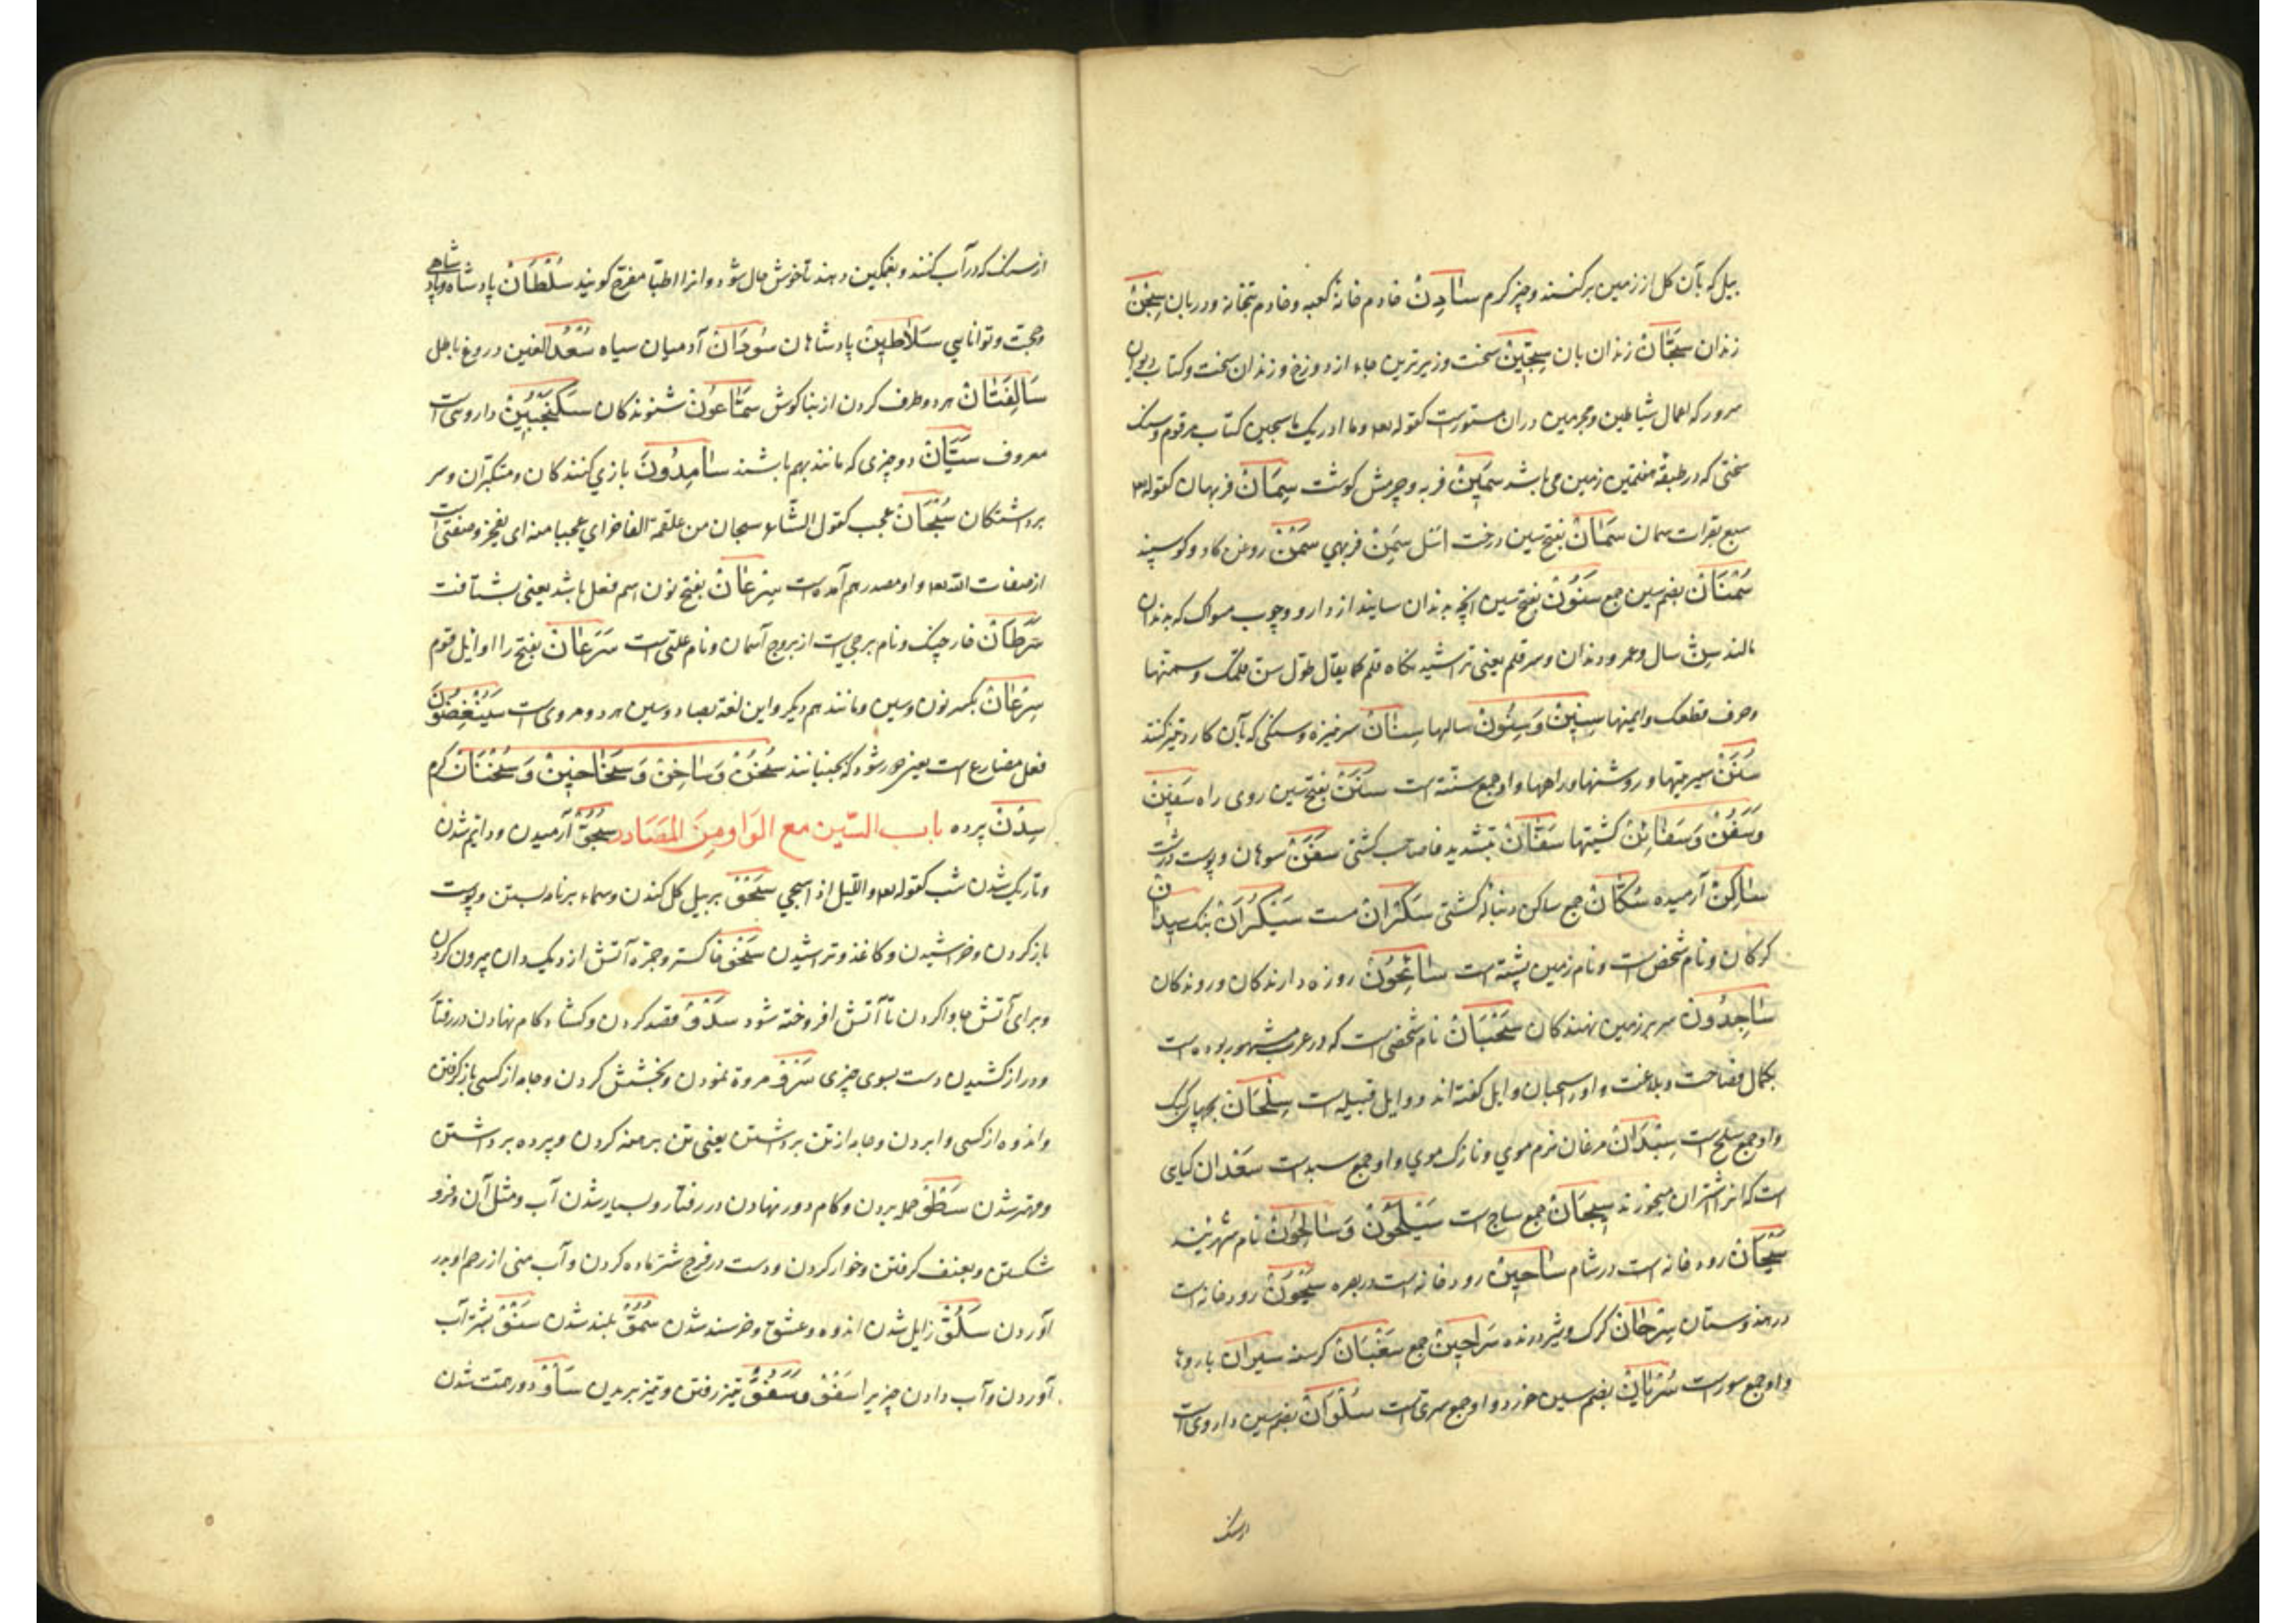 بیل که بآن کل از زمین برکنند و چیز کرم سَادِنْ خادم خانۀ کعبه و خادم بتخانه و دربان سِجْنْ
زندان سَجَّانْ زندان بان سِجِّینْ سخت و زیرترین جاء از دوزخ و زندان سخت و کتاب دیوان
که اعمال شیاطین و مجرمین دران مستورست کقوله تعه وما ادریک ما سجین کتاب مرقوم و سنک
سختی که در طبقۀ هفتمین زمین می باشد سَمِینْ فربه و چرمش کوشت سِمَانْ فربهان کقوله تعه
سبع بقرات سمان سَمَانْ بفتح سین درخت اثل سِمَنْ فربهي سَمْنْ روغن کاو و کوسپند
سُمْنَانْ بضم سین جمع سَنُونْ بفتح سین انچه بدندان سایند از دارو و چوب مسواک که بدندان
مالند سِنّ سال و عمر و دندان و سر قلم یعنی تراشیدنکاه قلم کما یقال طوّل سن قلمک و سمنها
وحرف قطعک وایمنها سِنِینْ وَسِنُونْ سالها سِنَانْ سر نیزه و سنکی که بآن کارد تیز کنند
سُنَنْ سیرتها و روشها و راهها و او جمع سنّة است سَنَنْ بفتح سین روی راه سَفِینْ
وَسُفُنْ وَسَفَائِنْ کشتیها سَفَّانْ بتشدید فا صاحب کشتی سَفَنْ سوهان و پوست درشت
سَاکِنْ آرمیده سُکَّانْ جمع ساکن و دنبالۀ کشتی سَکْرَانْ مست سَیْکُرَانْ بنک سِیدَانْ
کرکان و نام شخص است و نام زمین پشته است سَائِحُونْ روزه دارندکان و روندکان
سَاجِدُونْ سر بر زمین نهندکان سَحْبَانْ نام شخصی است که در عرب مشهور بوده است
بکمال فصاحت و بلاغت و او را سحبان وایل کفته اند و وایل قبیله است سِلْحَانْ بچهای کبک
و او جمع سلح است سِبْدَانْ مرغان نرم موي و نازک موي و او جمع سبد است سَعْدَان کیای
است که انرا شتران میخورند سِیجَانْ جمع ساج است سَیْلَحُونْ وَسَالِحُونْ نام شهریند
سَیْحَانْ رودخانه است در شام سَاحِینْ رودخانه است در بصره سَیْحُونْ رودخانه است
در هندوستان سِرْحَانْ کرک و شیر درنده سَرَاحِینْ جمع سَغْبَانْ کرسنه سِیرَان باروها
و او جمع سور است سُرْیَانْ بضم سین خرد و او جمع سری است سُلْوَانْ بضم سین داروی است
ازسنک
از سنک که در آب کنند و بغمکین دهند تا خوش حال شود و انرا اطبّا مفرّح کویند سُلْطَانْ پادشاه و پادشاهي
و حجت و توانایي سَلَاطِینْ پادشاهان سُودَانْ آدمیان سیاه سُعْدُ القین دروغ باطل
سَالِفَتَانْ هر دو طرف کردن از بناکوش سَمَّاعُونْ شنوندکان سَکَنْجَبِینْ داروی است
معروف سِیَّانْ دو چیزی که مانند بهم باشند سَامِدُونَ بازي کنندکان و متکبّران و سر
برداشتکان سُبْحَانْ عجب کقول الشّاعر سبحان من علقمة الفاخر اي عجبا منه ای یفخر و صفتی است
از صفات الله تعه و او مصدر هم آمده است سِرْعَانْ بفتح نون اسم فعل باشد یعنی بشتافت
سَرَطَانْ خارچنک و نام برجي است از بروج آسمان و نام علتی است سَرَعَانْ بفتح را اوایل قوم
سِرْعَانْ بکسر نون و سین و مانند هم دیکر و این لغة بصاد و سین هر دو مروی است سَیُنْغِضُونَ
فعل مضارع است یعنی زود شود که بجنبانند سُخْنْ وَسَاخِنْ وَسَخَاخِینْ وَسُخْنَانْ کرم
سِدْنْ پرده باب السّین مع الوَاو مِنَ المَصَادر سُجُوّ آرمیدن و دایم شدن
و تاریک شدن شب کقوله تعه و اللّیل اذا سجي سَحْوْ بربیل کل کندن و سماء برنامه بستن و پوست
باز کردن و خراشیدن و کاغذ و تراشیدن سَخْوْ خاکستر و جمرۀ آتش از دیکدان بیرون کردن
و برای آتش جا واکردن تا آتش افروخته شود سَدْوْ قصد کردن و کشاد کام نهادن در رفتار
و دراز کشیدن دست بسوی چیزی سَرْوْ مروة نمودن و بخشش کردن و جامه از کسی باز کرفتن
و اندوه از کسی وابردن و جامه از تن برداشتن یعنی تن برهنه کردن و پرده برداشتن
و مهتر شدن سَطْوْ حمله بردن و کام دور نهادن در رفتار و بسیار شدن آب و مثل آن و فرو
شکستن و بعنف کرفتن و خوار کردن و دست در فرج شتر ماده کردن و آب منی از رحم او بدر
آوردن سُلُوّ زایل شدن اندوه و عشق و خرسند شدن سُمُوّ بلند شدن سَنْوْ بشتر آب
آوردن و آب دادن چیز یرا سَفْوْ وَسُفُوّ تیز رفتن و تیز پریدن سَاْوْ دور همّت شدن